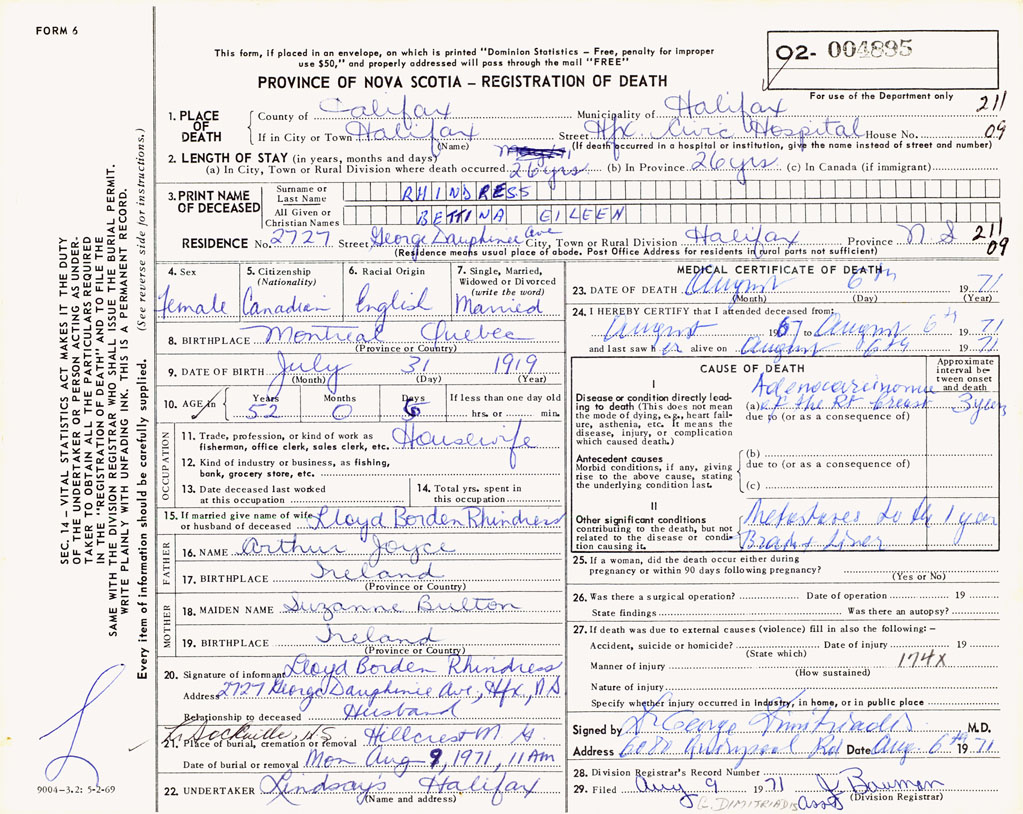 FORM 6
This form, if placed in an envelope, on which is printed "Dominion Statistics – Free, penalty for improper
use $50," and properly addressed will pass through the mail "FREE"
02- 004895
For use of the Department only
PROVINCE OF NOVA SCOTIA – REGISTRATION OF DEATH
211
09
1. PLACE OF DEATH
County of Califax Municipality of Halifax
If in City or Town Halifax Street Hfx Civic Hospital House No.
(Name) (If death occurred in a hospital or institution, give the name instead of street and number)
2. LENGTH OF STAY (in years, months and days)
(a) In City, Town or Rural Division where death occurred 26 yrs (b) In Province 26 yrs (c) In Canada (if immigrant)
3. PRINT NAME OF DECEASED
Surname or Last Name RHINDRESS
All Given or Christian Names BETTINA EILEEN
RESIDENCE No. 2727 Street George Dauphinee Ave City, Town or Rural Division Halifax Province N S
211
09
(Residence means usual place of abode. Post Office Address for residents in rural parts not sufficient)
4. Sex
Female
5. Citizenship (Nationality)
Canadian
6. Racial Origin
English
7. Single, Married, Widowed or Divorced (write the word)
Married
8. BIRTHPLACE Montreal Quebec
(Province or Country)
9. DATE OF BIRTH July 31 1919
(Month) (Day) (Year)
10. AGE In Years Months Days If less than one day old
52 0 6 hrs. or min.
OCCUPATION
11. Trade, profession, or kind of work as fisherman, office clerk, sales clerk, etc. Housewife
12. Kind of industry or business, as fishing, bank, grocery store, etc.
13. Date deceased last worked at this occupation
14. Total yrs. spent in this occupation
15. If married give name of wife or husband of deceased Lloyd Borden Rhindress
FATHER
16. NAME Arthur Joyce
17. BIRTHPLACE Ireland
(Province or Country)
MOTHER
18. MAIDEN NAME Suzanne Bulton
19. BIRTHPLACE Ireland
(Province or Country)
20. Signature of informant Lloyd Borden Rhindress
Address 2727 George Dauphinee Ave, Hfx, N S
Relationship to deceased Husband
Sackville, N.S. Hillcrest M G
21. Place of burial, cremation or removal
Date of burial or removal Mon Aug 9, 1971, 11 AM
22. UNDERTAKER Lindsay's Halifax
(Name and address)
MEDICAL CERTIFICATE OF DEATH
23. DATE OF DEATH August 6th 19 71
(Month) (Day) (Year)
24. I HEREBY CERTIFY that I attended deceased from:
August 1967 to August 6th 19 71
and last saw her alive on August 6th 19 71
CAUSE OF DEATH
Approximate interval between onset and death
I
Disease or condition directly leading to death (This does not mean the mode of dying, e.g., heart failure, asthenia, etc. It means the disease, injury, or complication which caused death.)
(a) Adenocarcinoma of the Rt breast 3 years
due to (or as a consequence of)
Antecedent causes
Morbid conditions, if any, giving rise to the above cause, stating the underlying condition last.
(b)
due to (or as a consequence of)
(c)
II
Other significant conditions contributing to the death, but not related to the disease or condition causing it.
Metastases to the 1 year
Brain & Liver
25. If a woman, did the death occur either during pregnancy or within 90 days following pregnancy?
(Yes or No)
26. Was there a surgical operation? Date of operation 19
State findings Was there an autopsy?
27. If death was due to external causes (violence) fill in also the following: –
Accident, suicide or homicide? Date of injury 19
(State which) 174X
Manner of injury
(How sustained)
Nature of injury
Specify whether injury occurred in Industry, in home, or in public place
Signed by George Dimitriadis M.D.
Address 6080 Quinpool Rd Date Aug. 6th 19 71
28. Division Registrar's Record Number
29. Filed Aug 9 19 71 J Bauman
G. DIMITRIADIS Asst (Division Registrar)
SEC. 14 – VITAL STATISTICS ACT MAKES IT THE DUTY
OF THE UNDERTAKER OR PERSON ACTING AS UNDER-
TAKER TO OBTAIN ALL THE PARTICULARS REQUIRED
IN THE "REGISTRATION OF DEATH" AND TO FILE THE
SAME WITH THE DIVISION REGISTRAR WHO SHALL ISSUE THE BURIAL PERMIT.
WRITE PLAINLY WITH UNFADING INK. THIS IS A PERMANENT RECORD.
Every item of information should be carefully supplied. (See reverse side for instructions.)
9004-3.2: 5-2-69